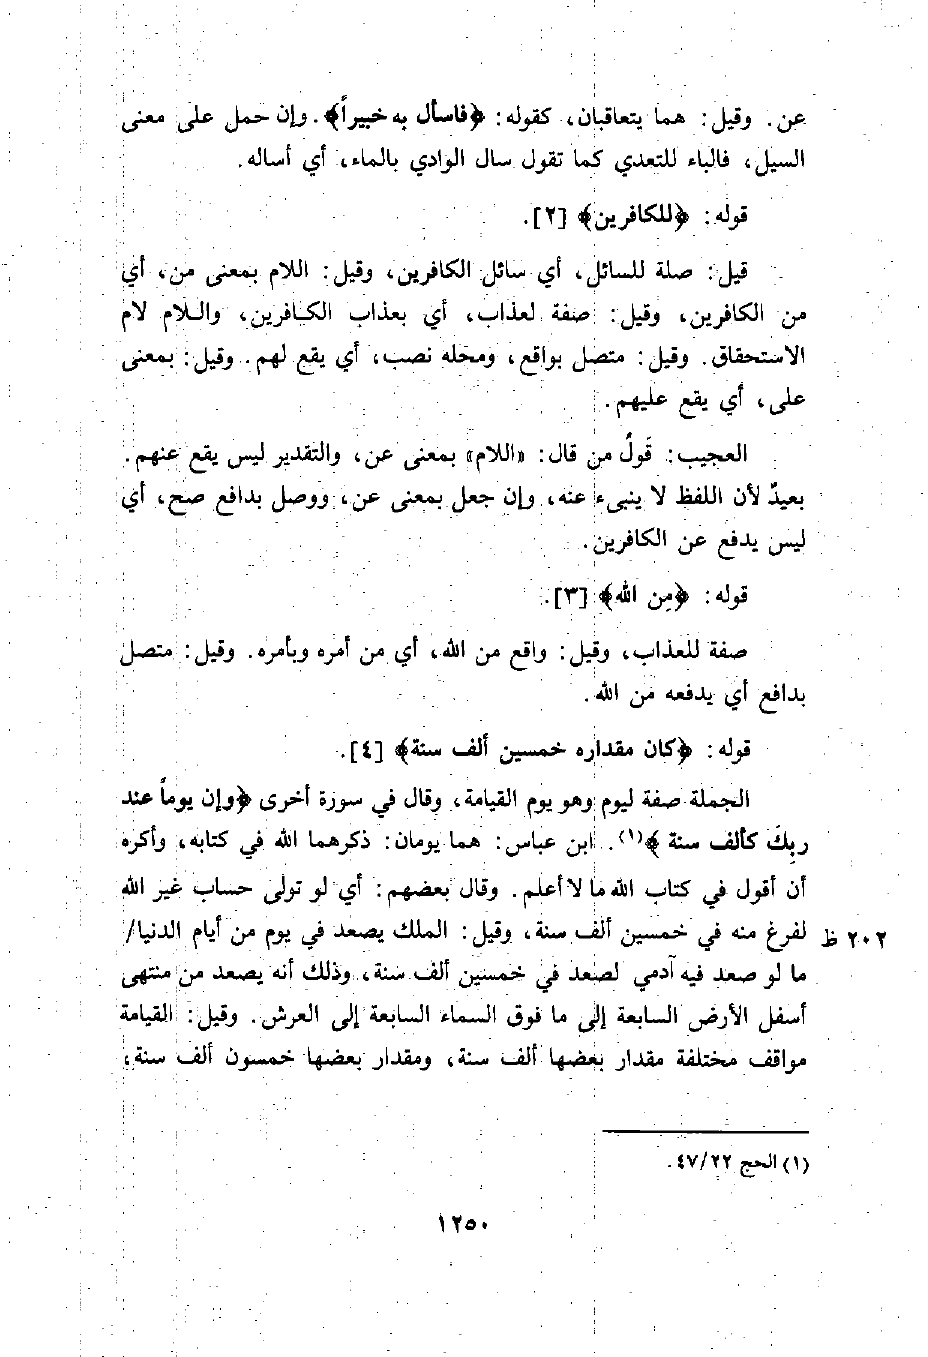 عن. وقيل: هما يتعاقبان، كقوله: ﴿فاسأل به خبيراً﴾. وإن حمل على معنى
السيل، فالباء للتعدي كما تقول سال الوادي بالماء، أي أساله.
قوله: ﴿للكافرين﴾ [٢].
قيل: صلة للسائل، أي سائل الكافرين، وقيل: اللام بمعنى من، أي
من الكافرين، وقيل: صفة لعذاب، أي بعذاب الكافرين، واللام لام
الاستحقاق. وقيل: متصل بواقع، ومحله نصب، أي يقع لهم. وقيل: بمعنى
على، أي يقع عليهم.
العجيب: قَولُ من قال: «اللام» بمعنى عن، والتقدير ليس يقع عنهم.
بعيدٌ لأن اللفظ لا ينبىء عنه، وإن جعل بمعنى عن، ووصل بدافع صح، أي
ليس يدفع عن الكافرين.
قوله: ﴿مِن الله﴾ [٣].
صفة للعذاب، وقيل: واقع من الله، أي من أمره وبأمره. وقيل: متصل
بدافع أي يدفعه من الله.
قوله: ﴿كان مقداره خمسين ألف سنة﴾ [٤].
الجملة صفة ليوم وهو يوم القيامة، وقال في سورة أخرى ﴿وإن يوماً عند
ربِكَ كألف سنة﴾(١). ابن عباس: هما يومان: ذكرهما الله في كتابه، وأكره
أن أقول في كتاب الله ما لا أعلم. وقال بعضهم: أي لو تولى حساب غير الله
لفرغ منه في خمسين ألف سنة، وقيل: الملك يصعد في يوم من أيام الدنيا/ ٢٠٢ ظ
ما لو صعد فيه آدمي لصعد في خمسين ألف سنة، وذلك أنه يصعد من منتهى
أسفل الأرض السابعة إلى ما فوق السماء السابعة إلى العرش. وقيل: القيامة
مواقف مختلفة مقدار بعضها ألف سنة، ومقدار بعضها خمسون ألف سنة،
(١) الحج ٤٧/٢٢.
١٢٥٠